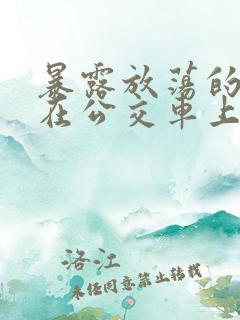 暴露放荡的
在公交车上
洛江
未经同意禁止转载